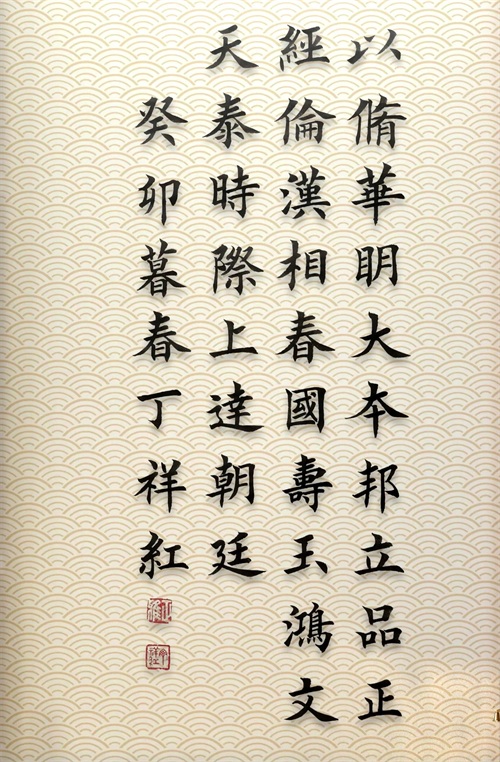 以脩華明大本邦立品正
經倫漢相春國壽玉鴻文
天泰時際上達朝廷
癸卯暮春丁祥紅